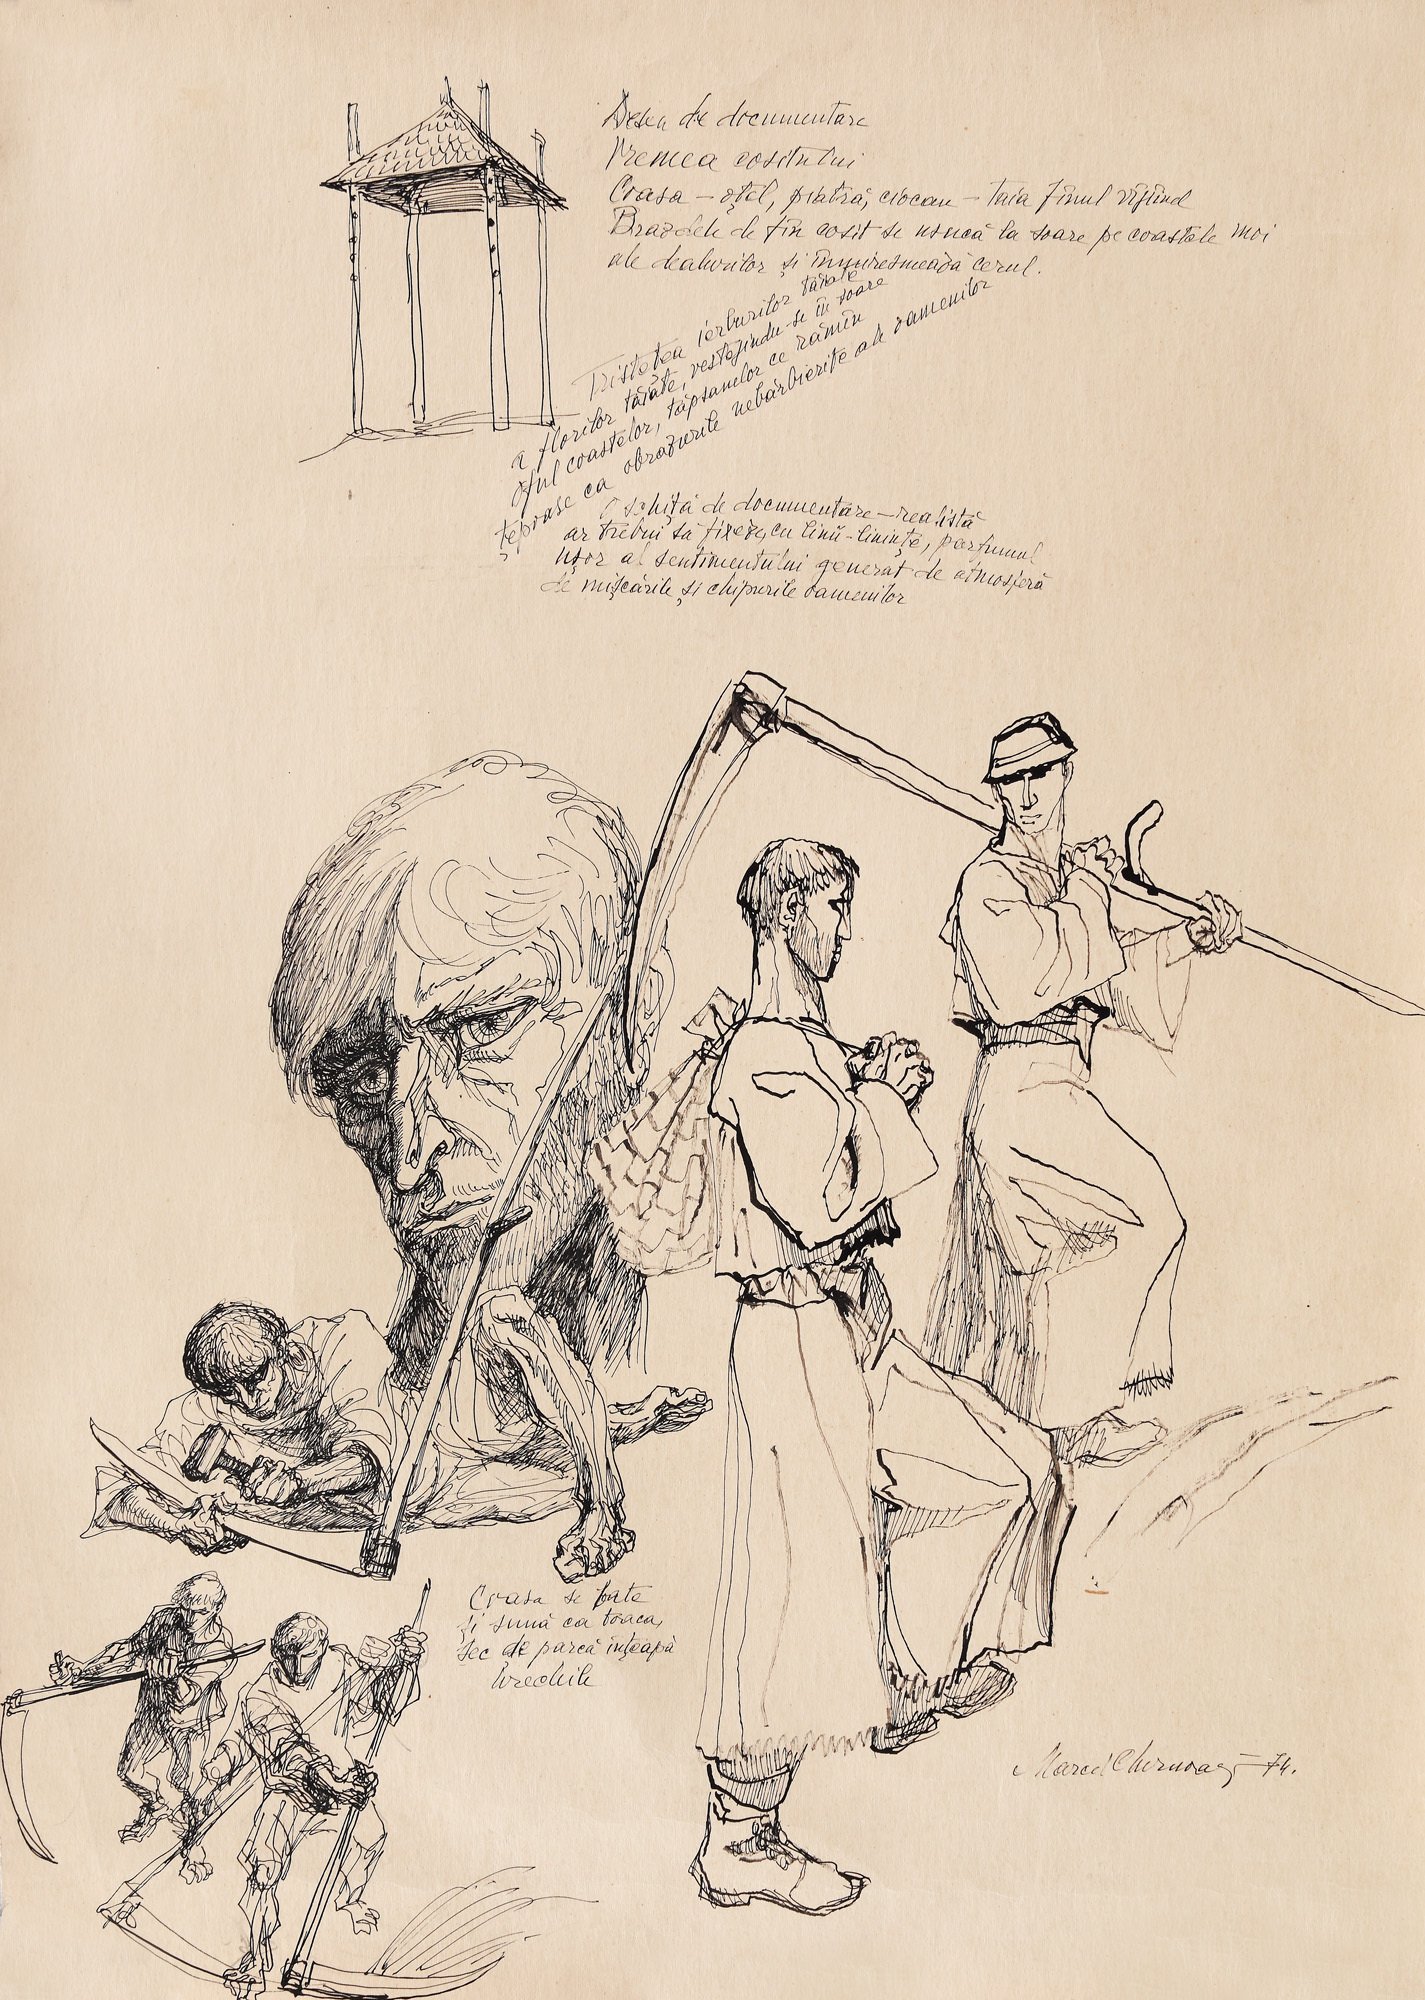 Desen de documentare
Vremea cositului
Coasa – oţel, piatră, ciocan – taia fînul vîjîind
Brazdele de fîn cosit se usucă la soare pe coastele moi
ale dealurilor şi înmiresmează cerul.
Tristeţea ierburilor tăiate
a florilor tăiate, vestejindu-se în soare
oful coastelor, tăpsanelor ce rămîn
ţepoase ca obrazurile nebărbierite ale oamenilor
O schiţă de documentare – realistă
ar trebui să fixeze, cu linii-liniuţe, parfumul
uşor al sentimentului generat de atmosferă
de mişcările şi chipurile oamenilor
Coasa se bate
şi sună ca toaca,
sec de parcă înţeapă
urechile
Marcel Chirnoagă – 74.